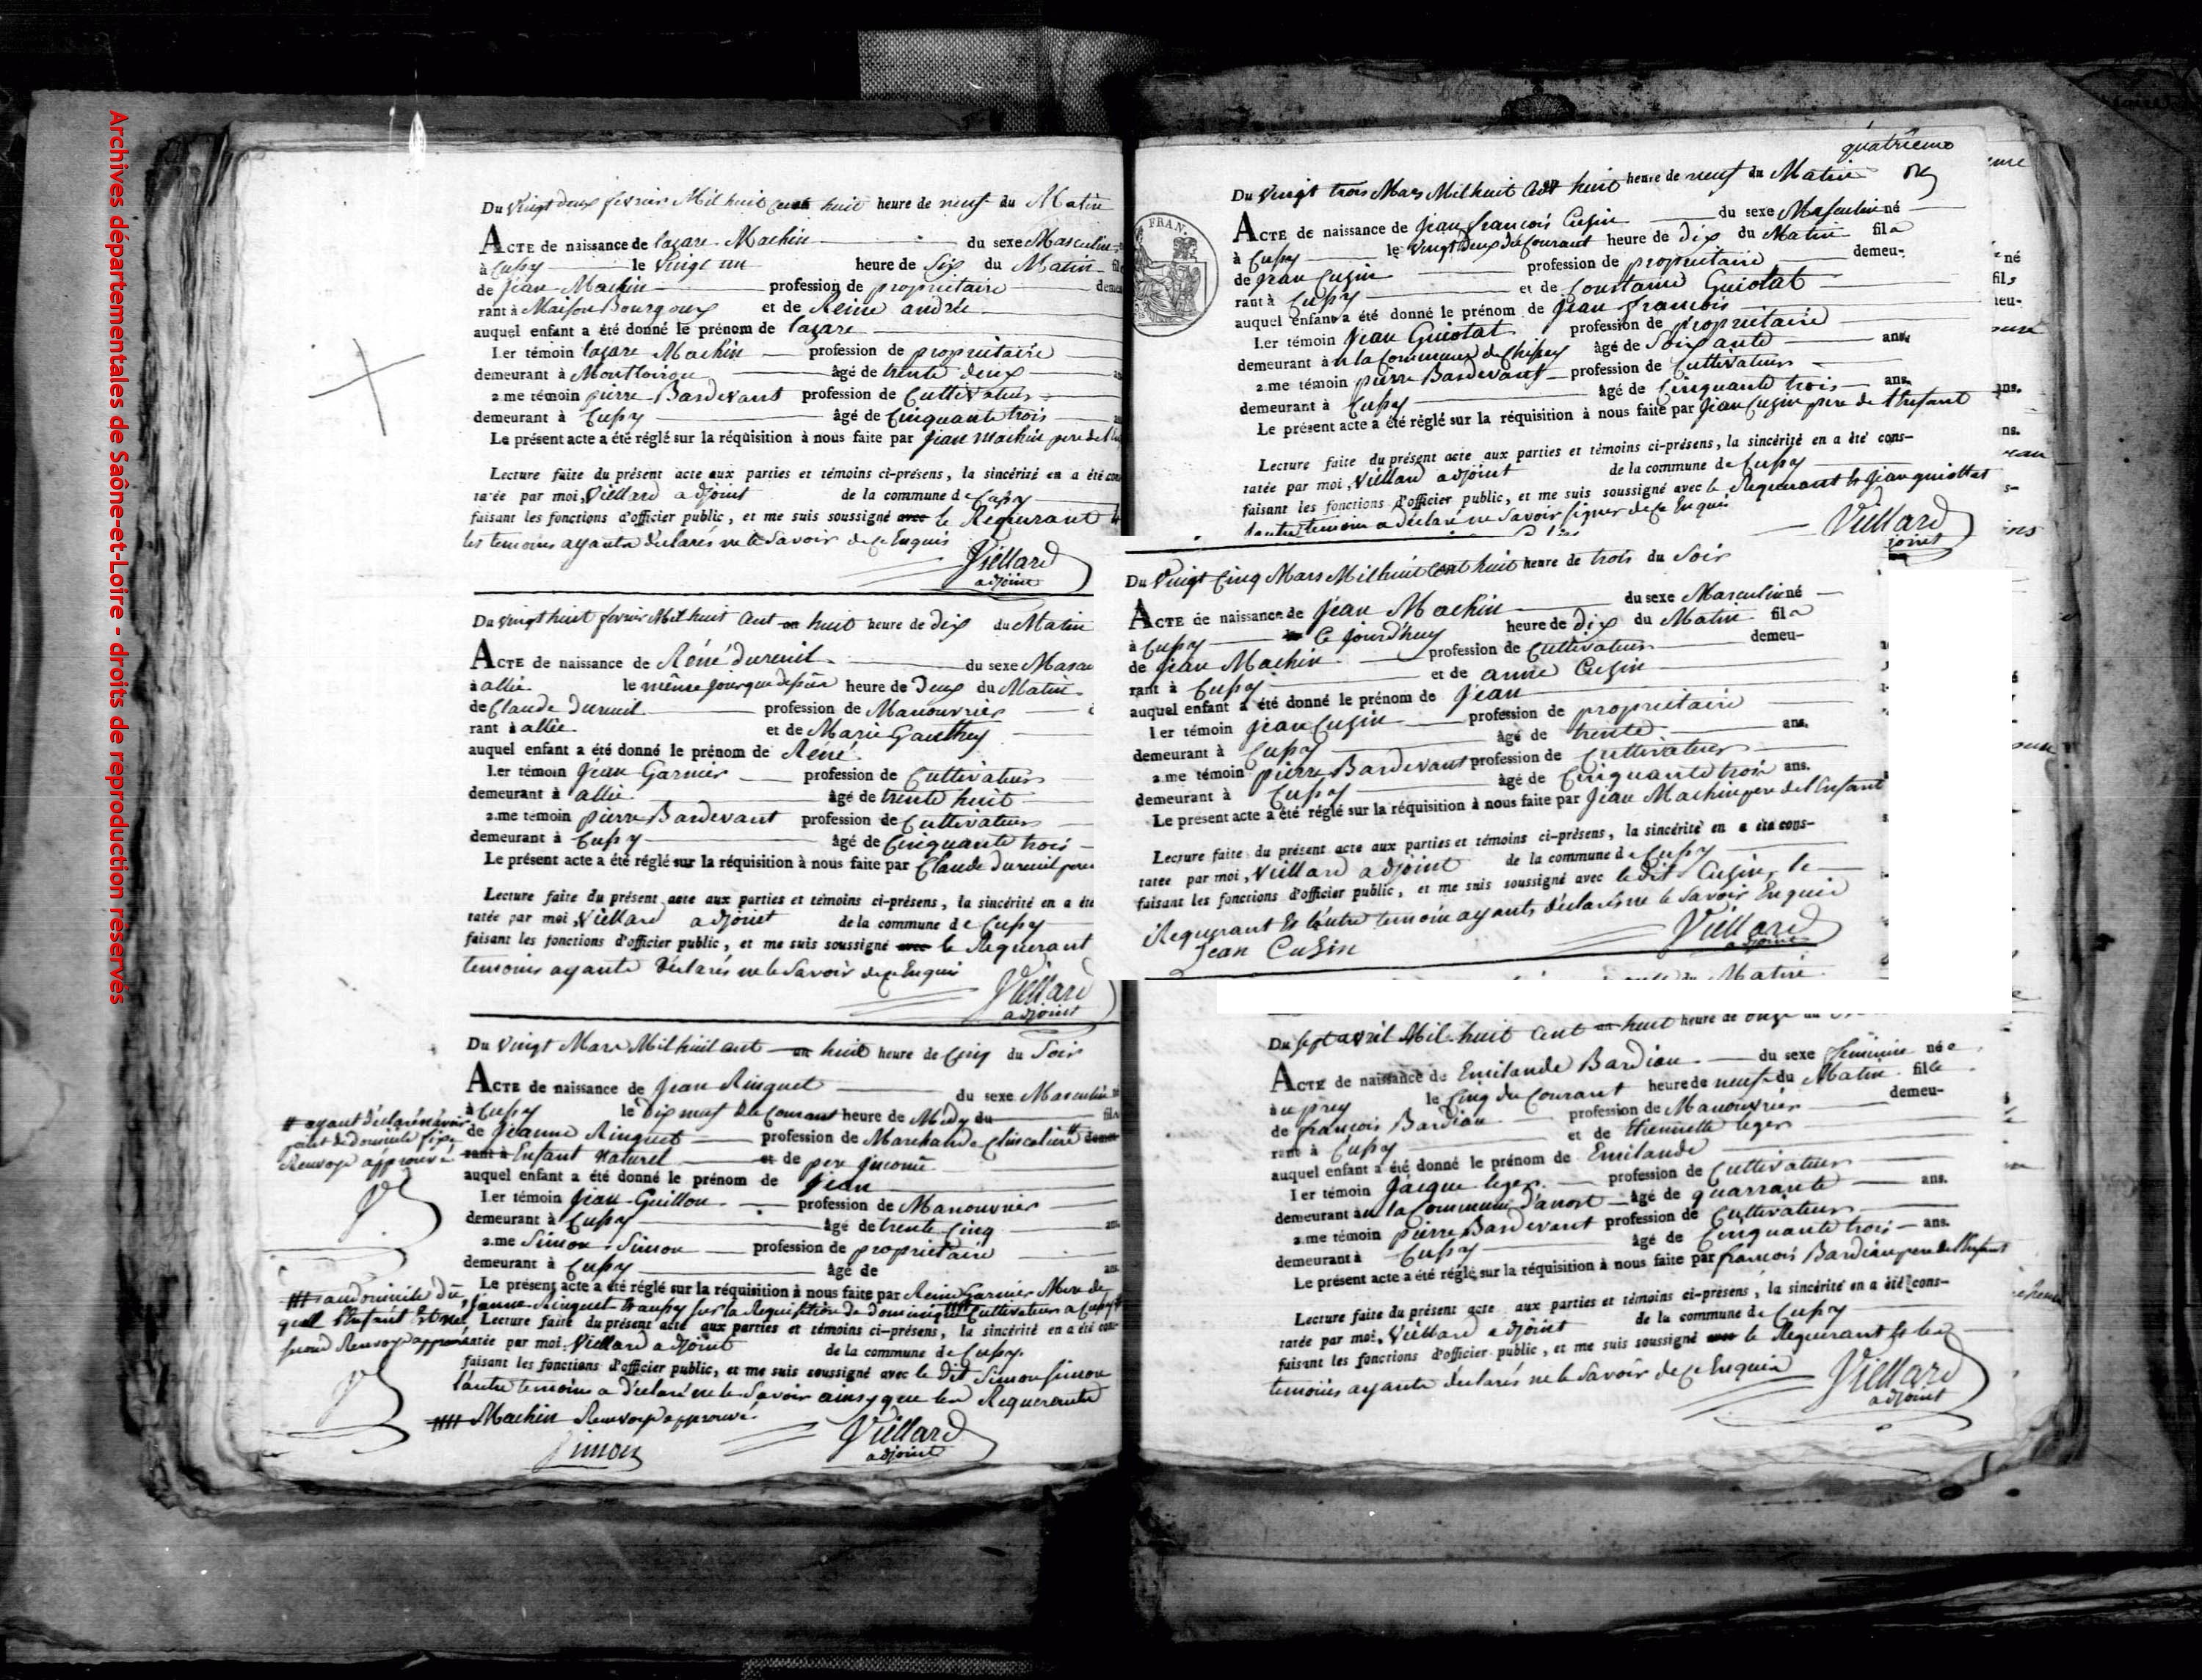 Archives départementales de Saône-et-Loire - droits de reproduction réservés
Du Vingt deux fevrier Mil huit cent huit heure de neuf du Matin
ACTE de naissance de lazare Machin du sexe Masculin
à Cussy le Vingt un heure de Six du Matin fils
de Jean Machin profession de propriétaire demeu
rant à Maison Bourgoux et de Reine andrée
auquel enfant a été donné le prénom de lazare
1.er témoin lazare Machin profession de propriétaire
demeurant à âgé de trente deux
2.me témoin pierre Bardevant profession de Cultivateur
demeurant à Cussy âgé de Cinquante trois
Le présent acte a été réglé sur la réquisition à nous faite par Jean Machin pere de l'
Lecture faite du présent acte aux parties et témoins ci-présens, la sincérité en a été cons
tatée par moi, Viellard adjoint de la commune de Cussy
faisant les fonctions d'officier public, et me suis soussigné avec le Requerant
les temoins ayants déclarés ne le Savoir de ce Enquis
Viellard
adjoint
Du vingt huit fevrier Mil huit cent an huit heure de dix du Matin
ACTE de naissance de Réné dureuil du sexe Mascu
à allie le même jour que dessus heure de Deux du Matin
de Claude dureuil profession de Manouvrier
rant à allie et de Marie Gauthey
auquel enfant a été donné le prénom de Réné
1.er témoin Jean Garnier profession de Cultivateur
demeurant à allie âgé de trente huit
2.me témoin pierre Bardevant profession de Cultivateur
demeurant à Cussy âgé de Cinquante trois
Le présent acte a été réglé sur la réquisition à nous faite par Claude dureuil pere
Lecture faite du présent acte aux parties et témoins ci-présens, la sincérité en a été
tatée par moi, Viellard adjoint de la commune de Cussy
faisant les fonctions d'officier public, et me suis soussigné avec le Requerant
temoins ayants déclarés ne le Savoir de ce Enquis
Viellard
adjoint
Du Vingt Mars Mil huit cent an huit heure de Cinq du Soir
ACTE de naissance de Jean Ringuet du sexe Masculin
à Cussy le dix neuf du Courant heure de Midy du fils
de Jeanne Ringuet profession de Marchande demeu
rant à Enfant Naturel et de pere inconnu
auquel enfant a été donné le prénom de Jean
1.er témoin Jean Guillon profession de Manouvrier
demeurant à Cussy âgé de trente Cinq ans
2.me Simon Simon profession de propriétaire
demeurant à Cussy âgé de ans
Le présent acte a été réglé sur la réquisition à nous faite par Reine Garnier Mere de
Jeanne Ringuet sur la Requisition de dominique Cultivateur a Cussy
Lecture faite du présent acte aux parties et témoins ci-présens, la sincérité en a été cons-
tatée par moi, Viellard adjoint de la commune de Cussy
faisant les fonctions d'officier public, et me suis soussigné avec le dit Simon Simon
l'autre temoins a déclaré ne le Savoir ainsy que les Requerants
Machin Renvoy approuvé
Simon
Viellard
adjoint
ayant déclaré n'avoir
point de domicile fixe
Renvoye approuvé
au domicile du
quel l'Enfant est né
second Renvoy approuvé
quatrieme
Du Vingt trois Mars Mil huit cent huit heure de neuf du Matin
FRAN.
ACTE de naissance de Jean françois Cuzin du sexe Masculin né
à Cussy le Vingt deux du Courant heure de dix du Matin fils
de Jean Cuzin profession de propriétaire demeu-
rant à Cussy et de Guiotat
auquel enfant a été donné le prénom de Jean francois
1.er témoin Jean Guiotat profession de propriétaire
demeurant à la Commune de Chissey âgé de Soixante ans.
2.me témoin pierre Bardevant profession de Cultivateur
demeurant à Cussy âgé de Cinquante trois ans.
Le présent acte a été réglé sur la réquisition à nous faite par Jean Cuzin pere de l'Enfant
Lecture faite du présent acte aux parties et témoins ci-présens, la sincérité en a été cons-
tatée par moi, Viellard adjoint de la commune de Cussy
faisant les fonctions d'officier public, et me suis soussigné avec le Requerant & Jean guiottat
l'autre temoin a déclaré ne Savoir signer de ce Enquis
Viellard
joint
Du Vingt Cinq Mars Mil huit Cent huit heure de trois du Soir
ACTE de naissance de Jean Machin du sexe Masculin né
à Cussy Ce jourd'huy heure de dix du Matin fils
de Jean Machin profession de Cultivateur demeu-
rant à Cussy et de anne Cuzin
auquel enfant a été donné le prénom de Jean
1.er témoin Jean Cuzin profession de propriétaire
demeurant à Cussy âgé de trente ans.
2.me témoin pierre Bardevant profession de Cultivateur
demeurant à Cussy âgé de Cinquante trois ans.
Le présent acte a été réglé sur la réquisition à nous faite par Jean Machin pere de l'Enfant
Lecture faite du présent acte aux parties et témoins ci-présens, la sincérité en a été cons-
tatée par moi, Viellard adjoint de la commune de Cussy
faisant les fonctions d'officier public, et me suis soussigné avec le dit Cuzin, le
Requerant & l'autre temoin ayants déclarés ne le Savoir Enquis
Jean CuZin
Viellard
adjoint
du Matin
Du sept avril Mil huit Cent an huit heure de onze du
ACTE de naissance de Emilande Bardiau du sexe feminin née
à Cussy le Cinq du Courant heure de neuf du Matin fille
de francois Bardiau profession de Manouvrier demeu-
rant à Cussy et de Etiennette leger
auquel enfant a été donné le prénom de Emilande
1.er témoin Jacque leger profession de Cultivateur
demeurant à la Commune d'anost âgé de quarrante ans.
2.me témoin pierre Bardevant profession de Cultivateur
demeurant à Cussy âgé de Cinquante trois ans.
Le présent acte a été réglé sur la réquisition à nous faite par francois Bardiau pere de l'Enfant
Lecture faite du présent acte aux parties et témoins ci-présens, la sincérité en a été cons-
tatée par moi, Viellard adjoint de la commune de Cussy
faisant les fonctions d'officier public, et me suis soussigné avec le Requerant & les
temoins ayants déclarés ne le Savoir de ce Enquis
Viellard
adjoint